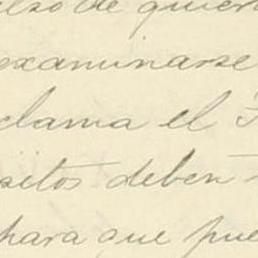 de quier
examinarse
clama el
setos deben
para que pue